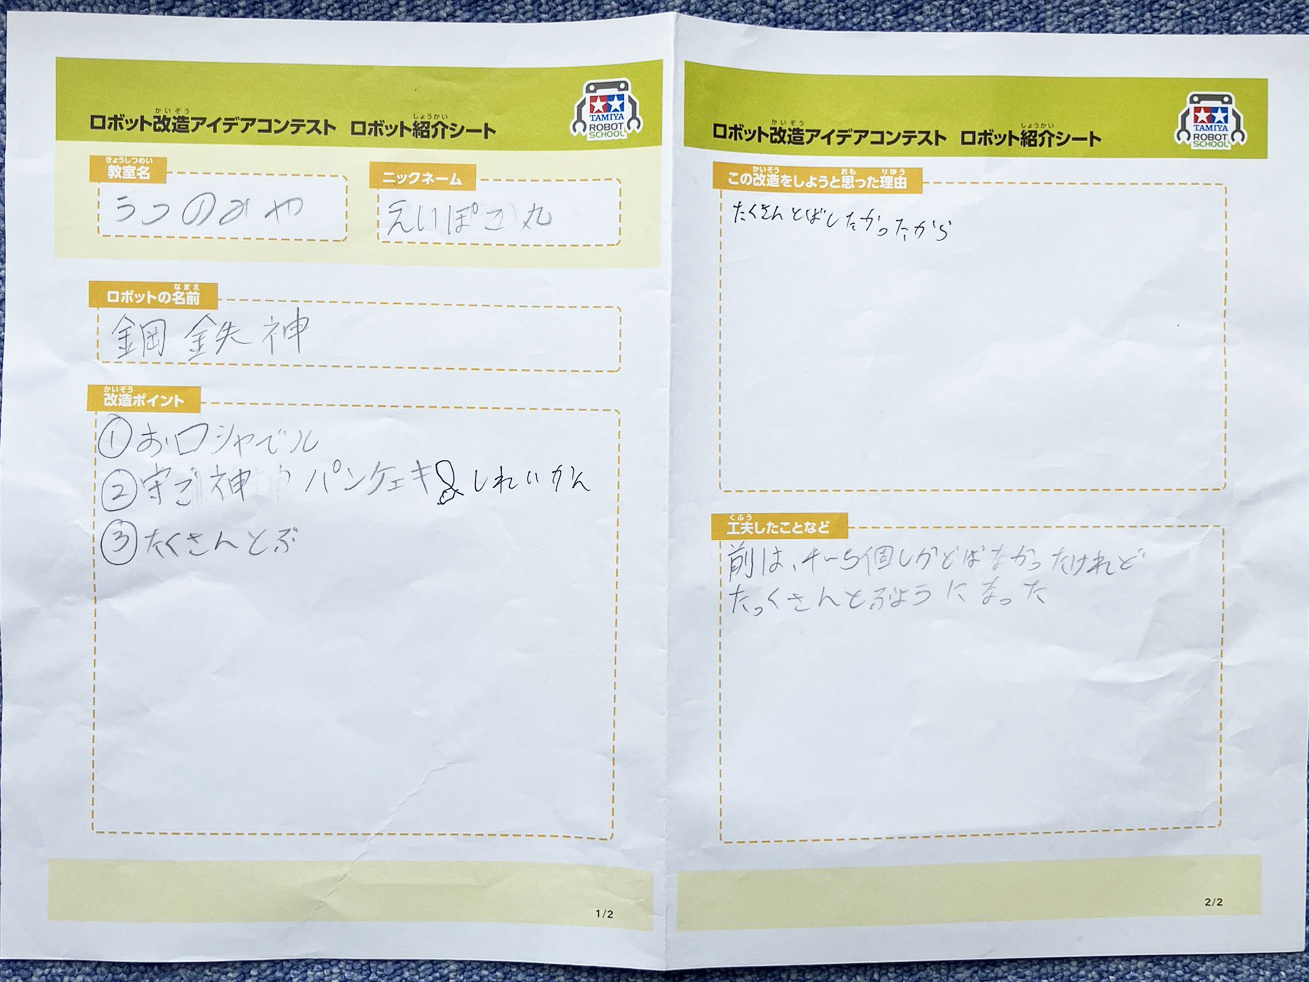 ロボット改造アイデアコンテスト ロボット紹介シート
かいぞう
しょうかい
TAMIYA
ROBOT
SCHOOL
きょうしつめい
教室名
うつのみや
ニックネーム
えいぽこ丸
なまえ
ロボットの名前
鋼鉄神
かいぞう
改造ポイント
①お口シャベル
②守ご神 パンケェキ&しれいかん
③たくさんとぶ
1/2
ロボット改造アイデアコンテスト ロボット紹介シート
かいぞう
しょうかい
TAMIYA
ROBOT
SCHOOL
かいぞう おも りゆう
この改造をしようと思った理由
たくさんとばしたかったから
くふう
工夫したことなど
前は、4~5個しかとばなかったけれど
たっくさんとぶようになった
2/2